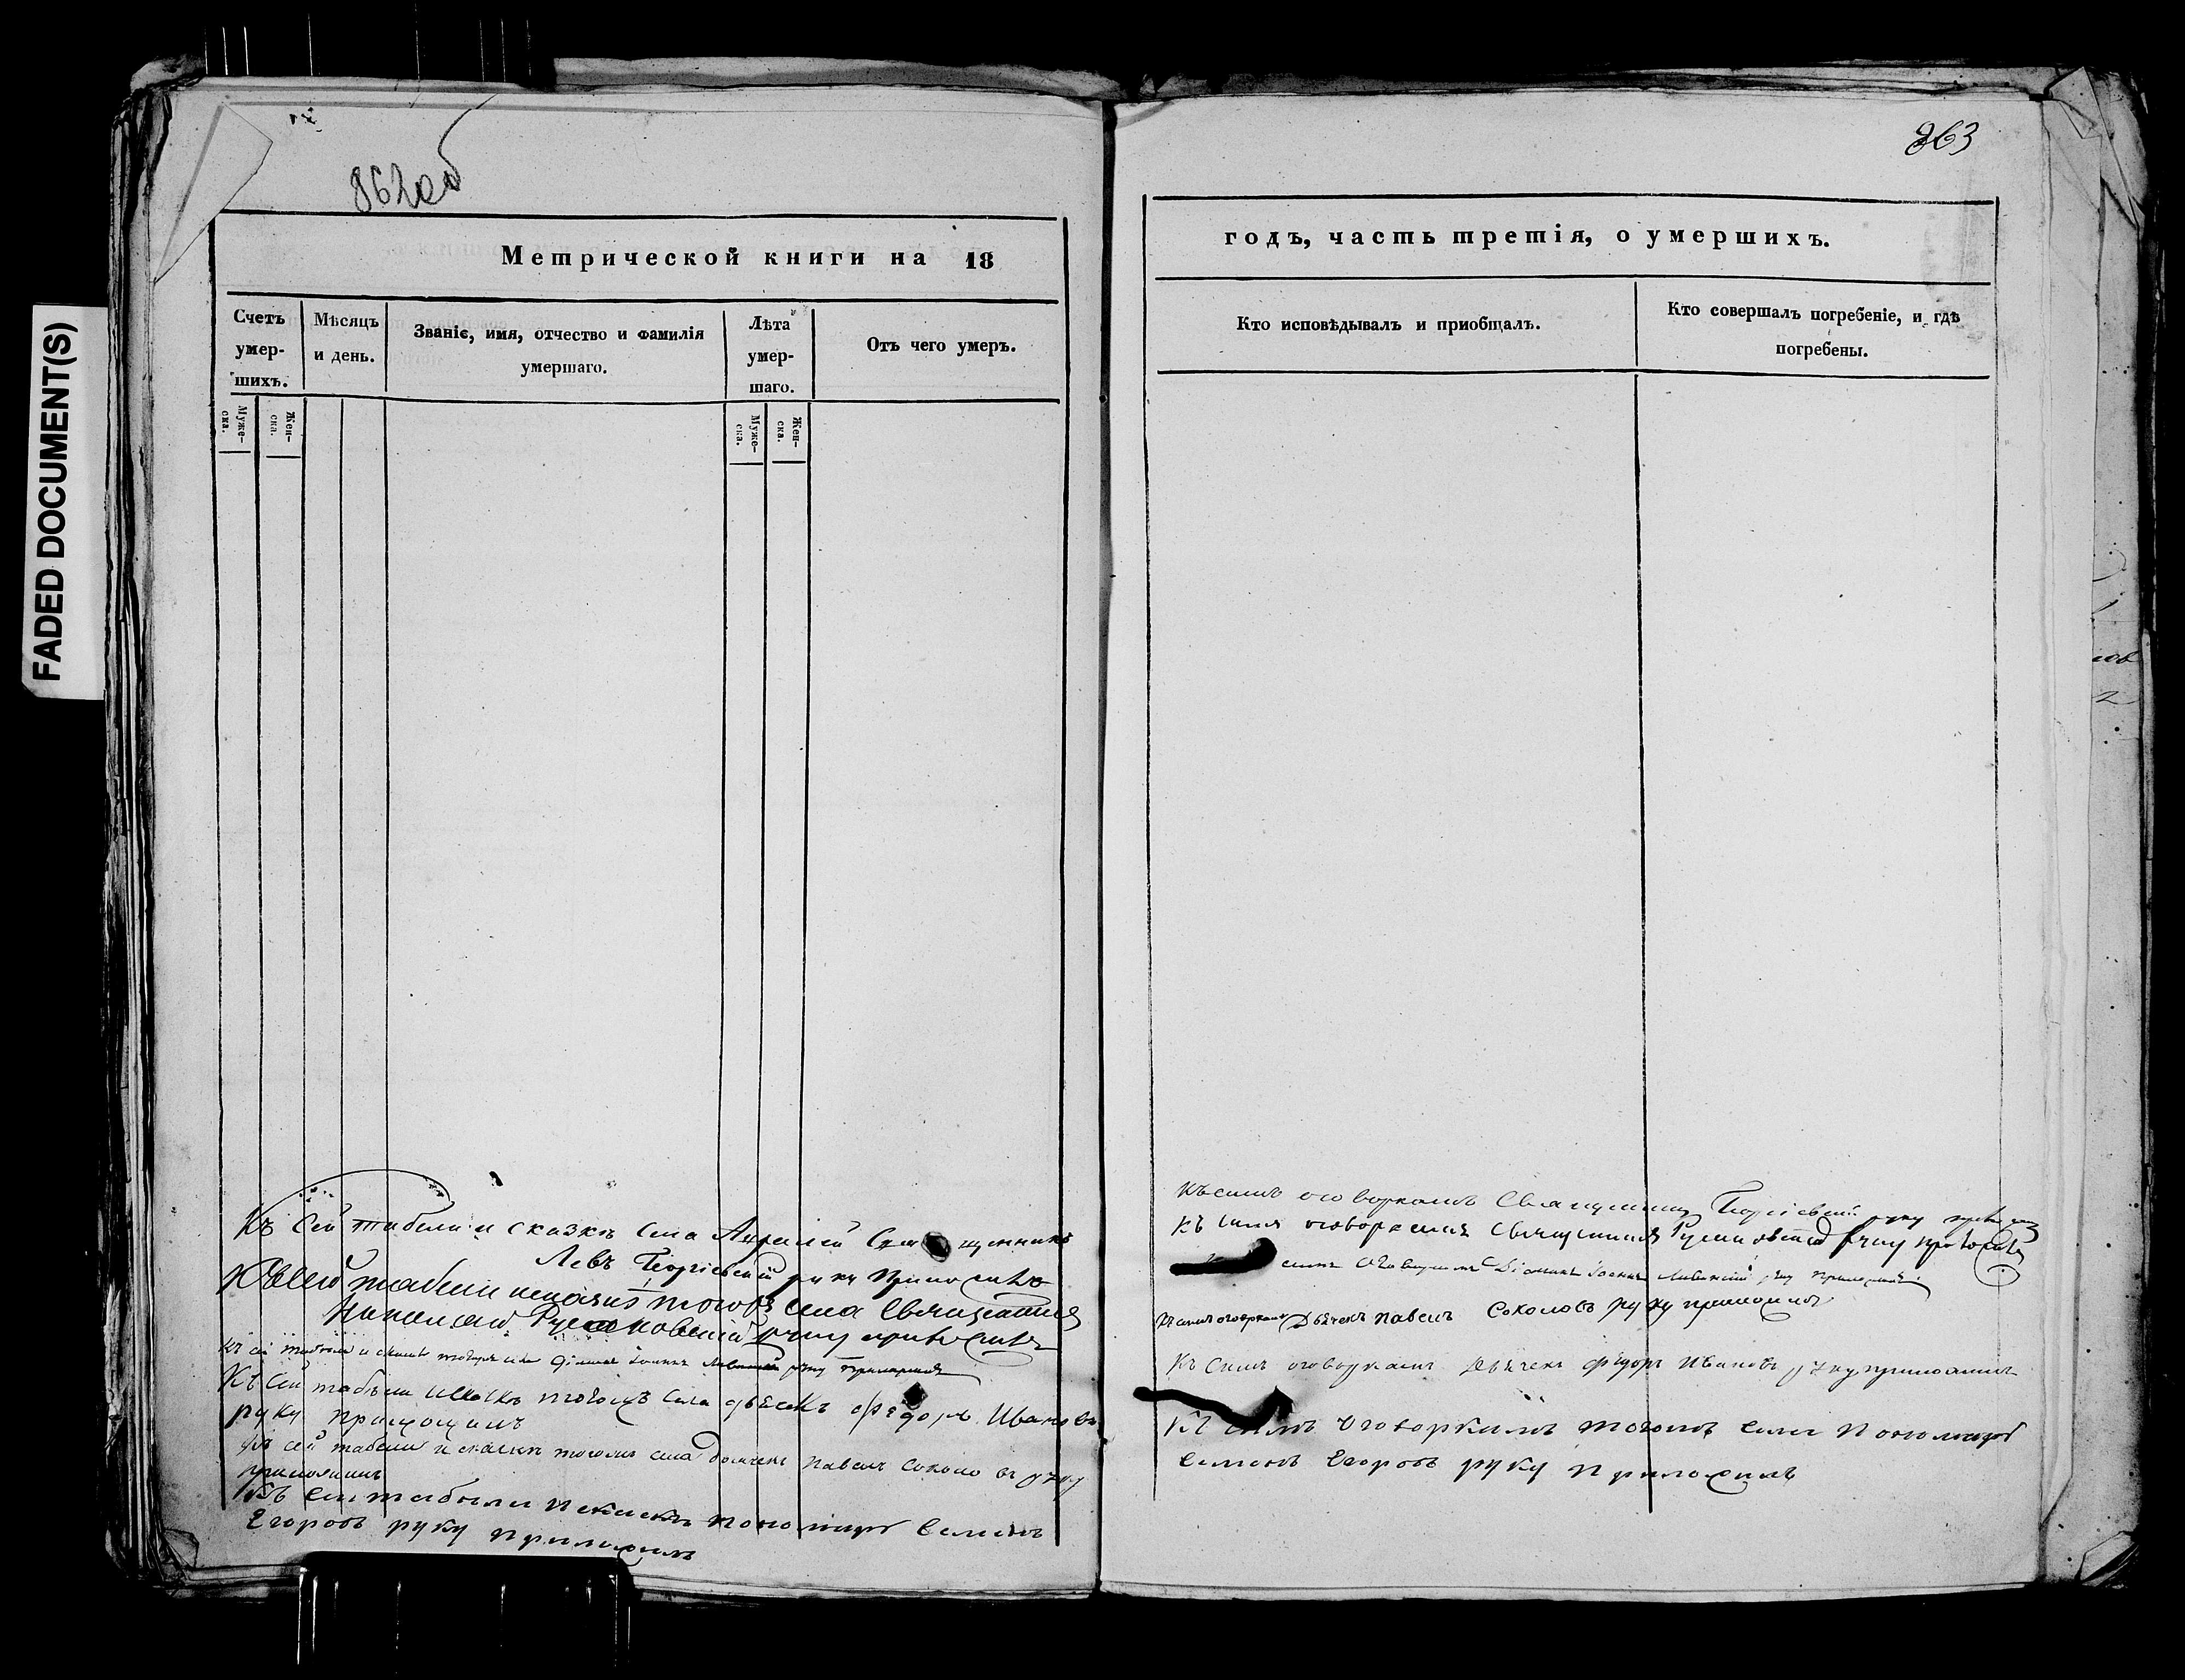 FADED DOCUMENT(S)
862об
Метрической книги на 18
Счетъ умер-шихъ.
Мѣсяцъ и день.
Званіе, имя, отчество и фамилія умершаго.
Лѣта умер-шаго.
Отъ чего умеръ.
Муже-ска.
Жен-ска.
Муже-ска.
Жен-ска.
Къ сей табели и сказкѣ села Священникъ
Левъ Георгіевскій руку приложилъ
Ксей табели исказкѣ тогожъ села Священникъ
руку приложилъ
къ сей табели и сказке тогожъ села Діаконъ Іоаннъ руку приложилъ
Къ сей табели исказкѣ тогожъ села дьячекъ Федоръ Ивановъ
руку приложилъ
къ сей табели и сказкѣ тогожъ села дьячекъ павелъ Соколовъ руку
приложилъ
Къ сей табели исказкѣ пономарь Семенъ
Егоровъ руку приложилъ
863
годъ, часть третія, о умершихъ.
Кто исповѣдывалъ и приобщалъ.
Кто совершалъ погребеніе, и гдѣ погребены.
Къ симъ оговоркамъ Священникъ Георгіевскій руку приложилъ
къ симъ оговоркамъ Священникъ руку приложилъ
симъ оговоркамъ Діаконъ Іоаннъ руку приложилъ
Ксимъ оговоркамъ Дьячекъ павелъ Соколовъ руку приложилъ
Къ симъ оговоркамъ Дьячекъ федоръ Ивановъ руку приложилъ
Къ симъ оговоркамъ тогожъ села пономарь
Семенъ Егоровъ руку приложилъ